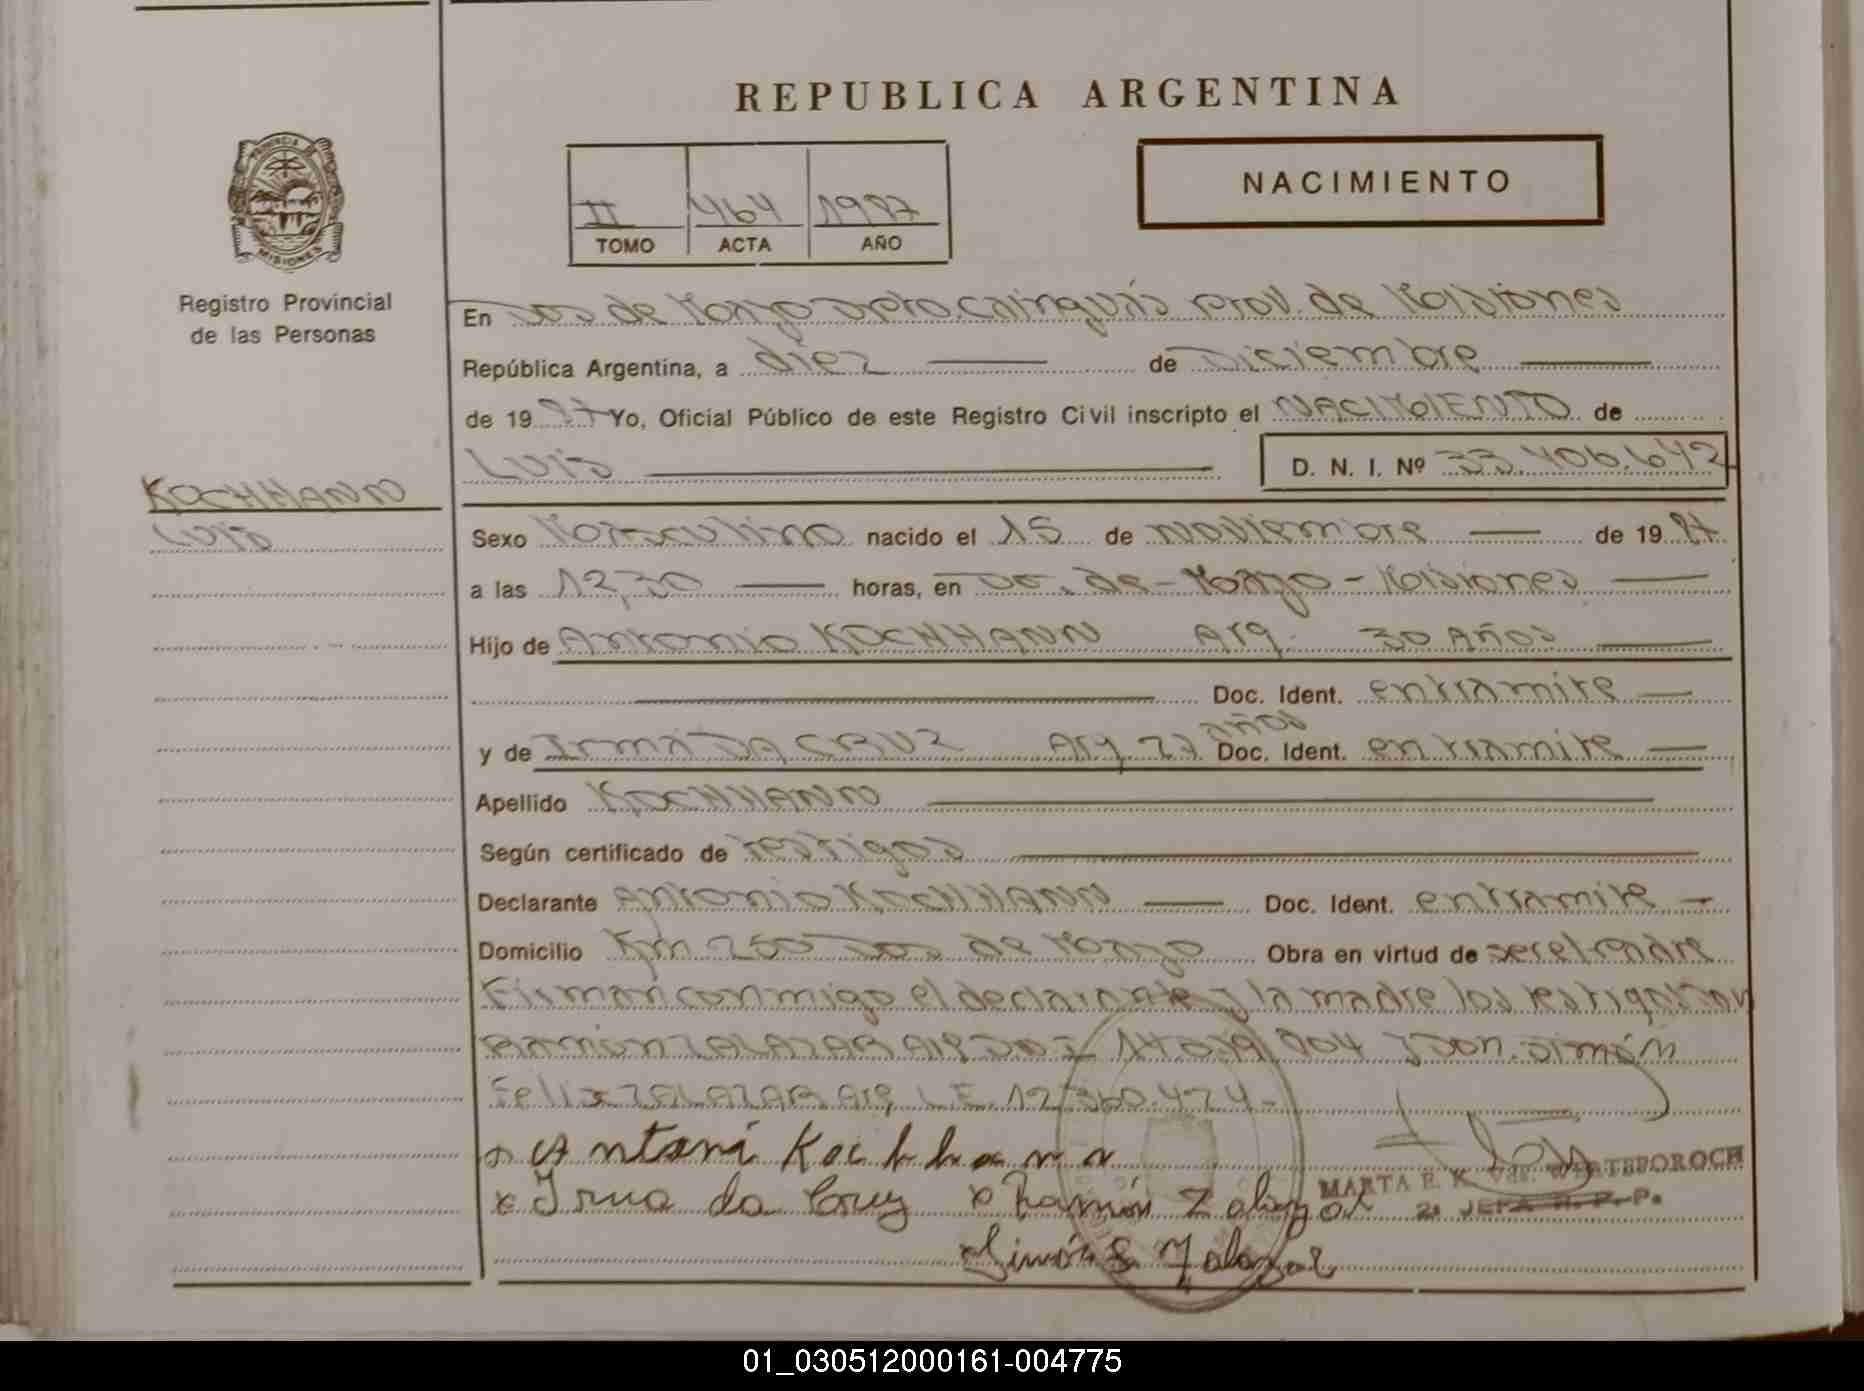 REPUBLICA ARGENTINA
PROVINCIA DE
MISIONES
Registro Provincial
de las Personas
II 464 1987
TOMO ACTA AÑO
NACIMIENTO
En Dos de Mayo Dpto. Cainguás Prov. de Misiones
República Argentina, a diez de Diciembre
de 19 87 Yo, Oficial Público de este Registro Civil inscripto el NACIMIENTO de
LUIS D. N. I. Nº 33.406.642
KOCHHANN
LUIS
Sexo Masculino nacido el 15 de noviembre de 19 87
a las 12,30 horas, en Dos de Mayo - Misiones
Hijo de Antonio KOCHHANN Arg. 30 Años
Doc. Ident. entramite
y de Irma DA CRUZ Arg. 27 años Doc. Ident. entramite
Apellido KOCHHANN
Según certificado de testigos
Declarante Antonio KOCHHANN Doc. Ident. entramite
Domicilio Km 250 Dos de Mayo Obra en virtud de ser el padre
Firman conmigo el declarante y la madre los testigos Don
Ramón ZALAZAR Arg. y Don. Simón
Felix ZALAZAR Arg. L.E. 12.360.474
x Antoni Kochhann
x Irma da Cruz x Ramón Zalazar
MARTA E. K. Vde.
x Simón F Zalazar
01_030512000161-004775